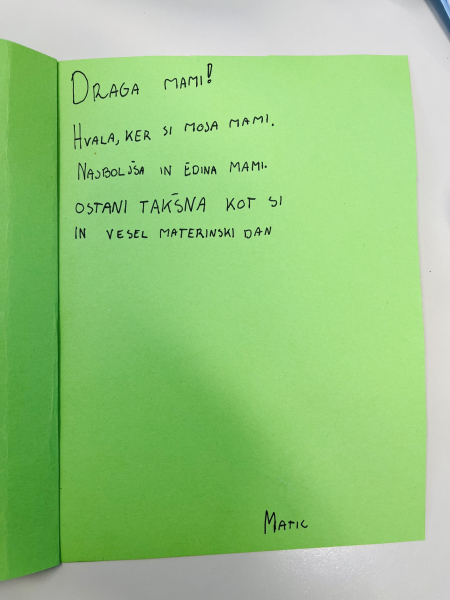 DRAGA MAMI!
HVALA, KER SI MOJA MAMI.
NAJBOLJŠA IN EDINA MAMI.
OSTANI TAKŠNA KOT SI
IN VESEL MATERINSKI DAN
MATIC